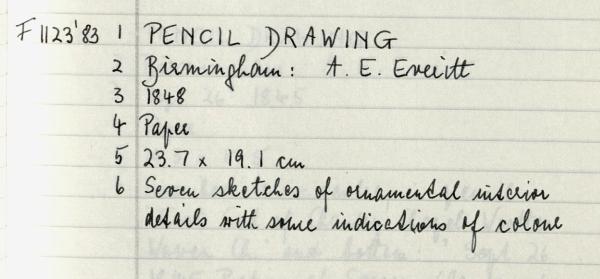 F 1123'83 1 PENCIL DRAWING
2 Birmingham: A. E. Everitt
3 1848
4 Paper
5 23.7 x 19.1 cm
6 Seven sketches of ornamental interior
details with some indications of colour